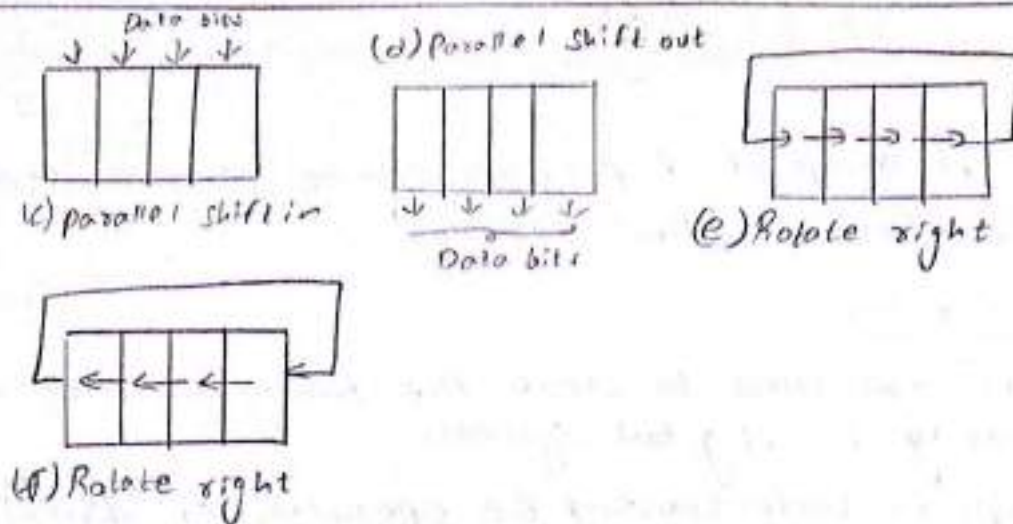 Data bits
(c) parallel shift in
(d) parallel shift out
Data bits
(e) Rotate right
(f) Rotate right